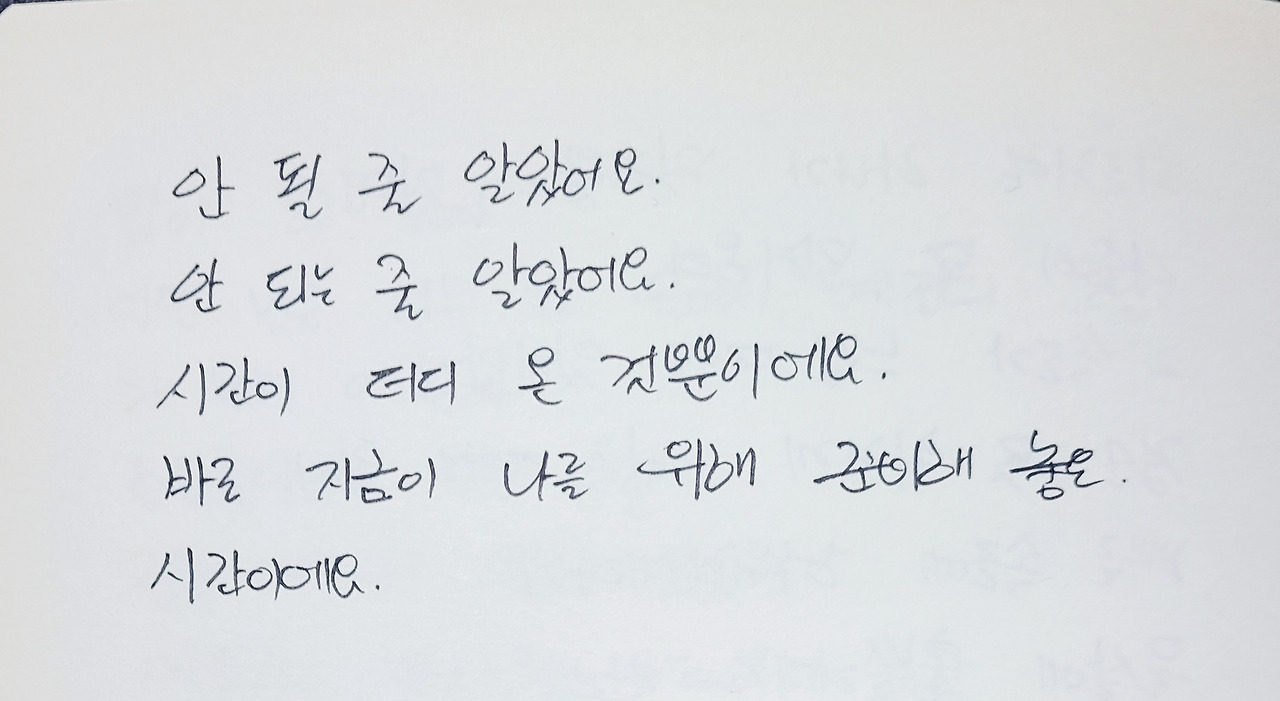 안 될 줄 알았어요.
안 되는 줄 알았어요.
시간이 더디 온 것뿐이에요.
바로 지금이 나를 위해 준비해 놓은.
시간이에요.